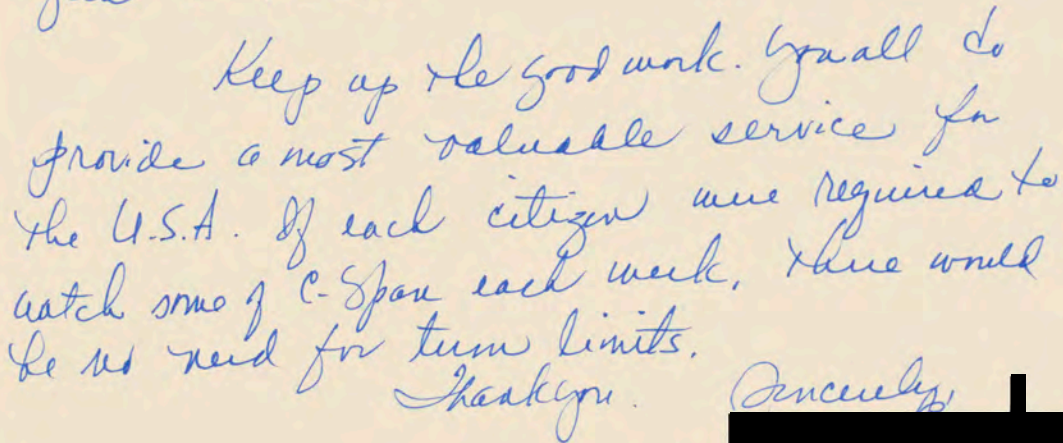 Keep up the good work. You all do
provide a most valuable service for
the U.S.A. If each citizen were required to
watch some of C-Span each week, there would
be no need for term limits.
Thank you. Sincerely,